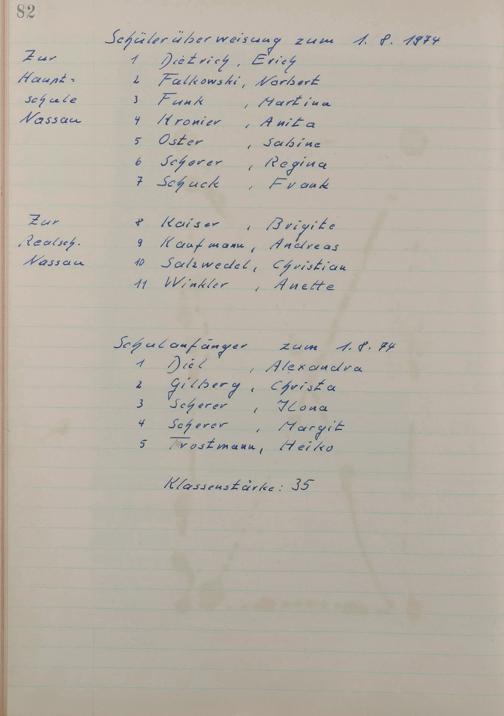 82
Schülerüberweisung zum 1. 8. 1974
Zur 1 Dietrich, Erich
Haupt- 2 Falkowski, Norbert
schule 3 Funk, Martina
Nassau 4 Kronier, Anita
5 Oster, Sabine
6 Scherer, Regina
7 Schuck, Frank
Zur 8 Kaiser, Brigite
Realsch. 9 Kaufmann, Andreas
Nassau 10 Salzwedel, Christian
11 Winkler, Anette
Schulanfänger zum 1. 8. 74
1 Diel, Alexandra
2 Gilberg, Christa
3 Scherer, Ilona
4 Scherer, Margit
5 Trostmann, Heiko
Klassenstärke: 35